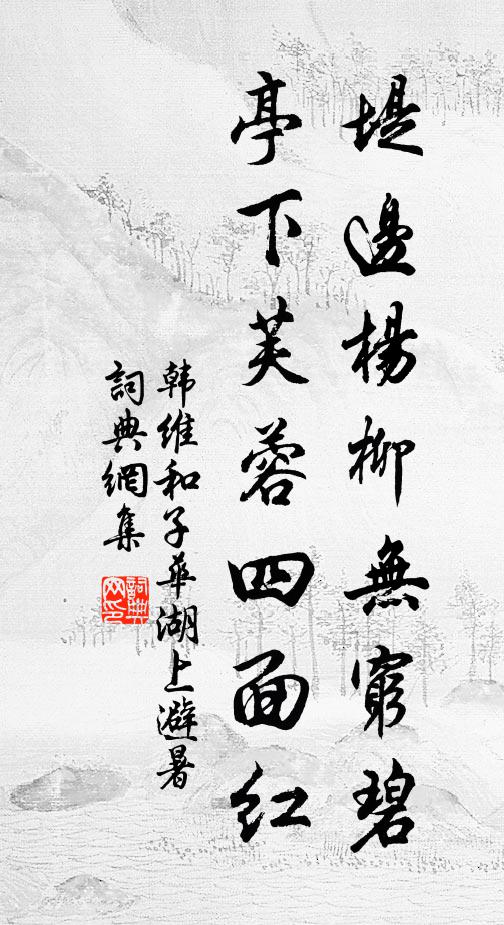 堤邊楊柳無窮碧
亭下芙蓉四面红
韩維和子華湖上避暑
詞典網集